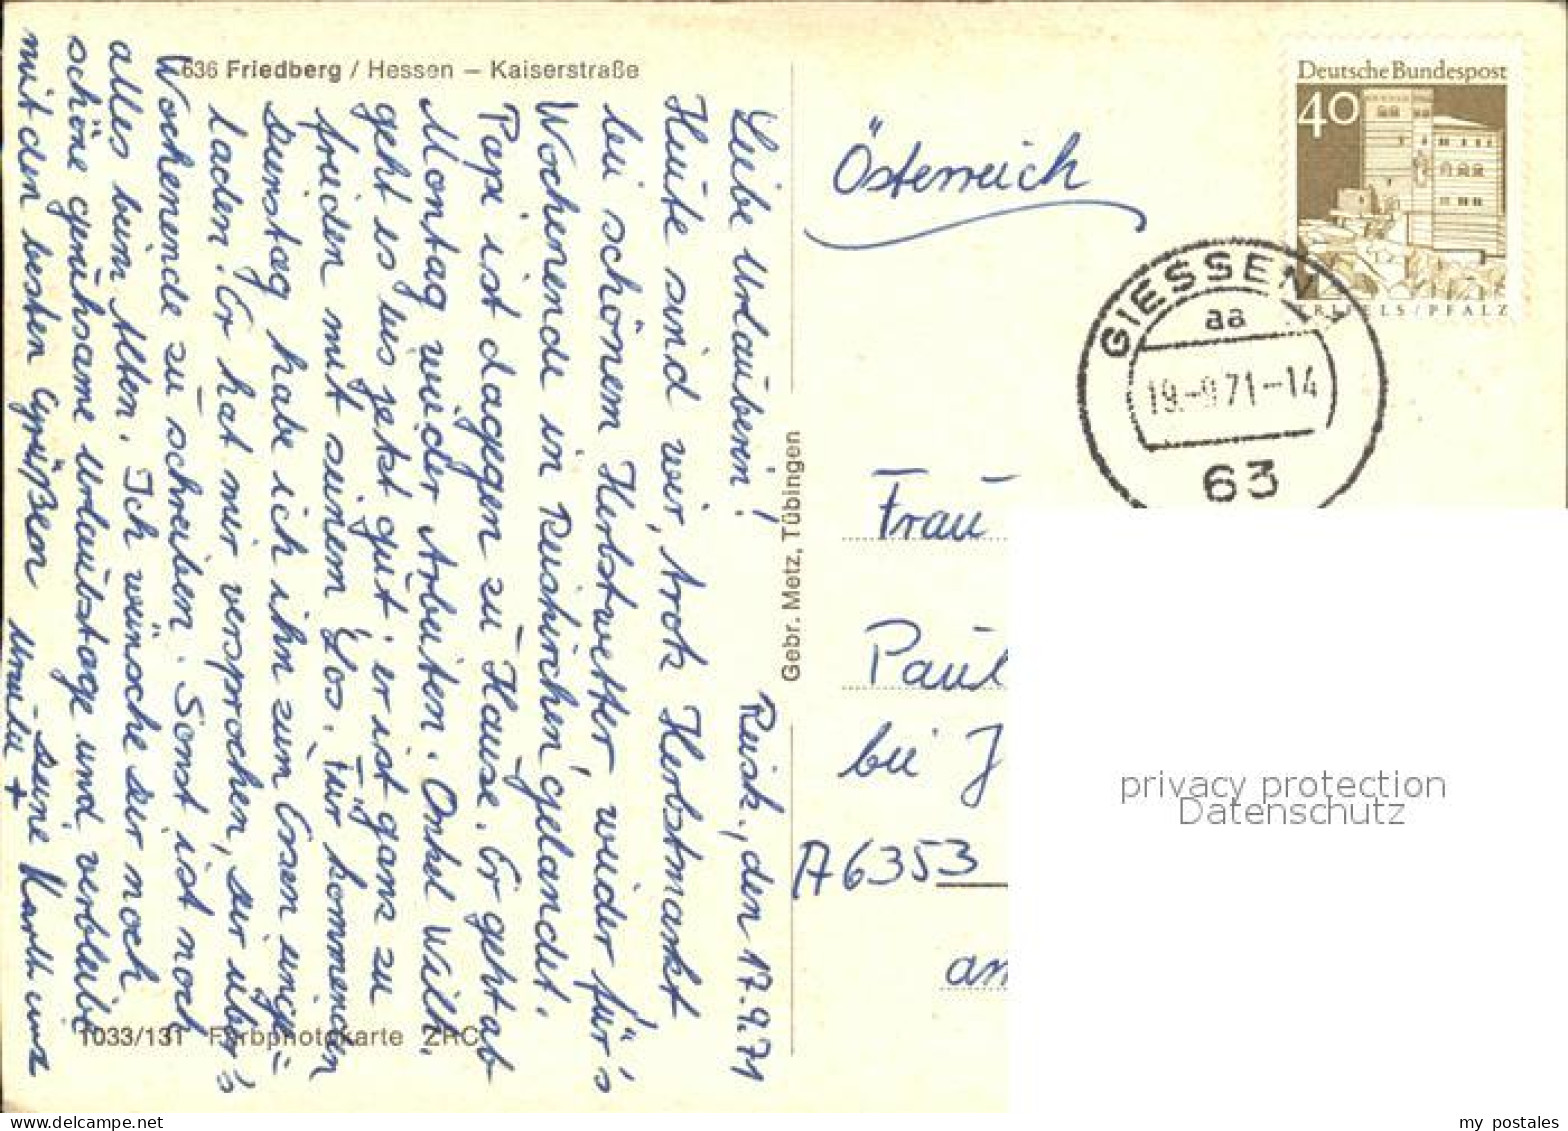 636 Friedberg / Hessen – Kaiserstraße
Reisk., den 17.9.71
Liebe Urlauberin!
Heute sind wir, trotz Herbstmarkt
bei schönem Herbstwetter, wieder für's
Wochenende in Reiskirchen gelandet.
Papa ist dagegen zu Hause. Er geht ab
Montag wieder Arbeiten. Onkel Wilh.
geht es jetzt gut. er ist ganz zu
frieden mit seinem Los. Für kommenden
Dienstag habe ich ihn zum Essen einge=
laden. Er hat mir versprochen, dir über's
Wochenende zu schreiben. Sonst ist noch
alles beim Alten. Ich wünsche dir noch
schöne geruhsame Urlaubstage und verbleibe
mit den besten Grüßen deine Karth
1033/131 Farbphotokarte ZRC
Gebr. Metz, Tübingen
Österreich
Deutsche Bundespost
40
TRIFELS/PFALZ
GIESSEN 1
aa
19.-9.71-14
63
Frau
Paul
bei J
A6353
am
privacy protection
Datenschutz
my postales